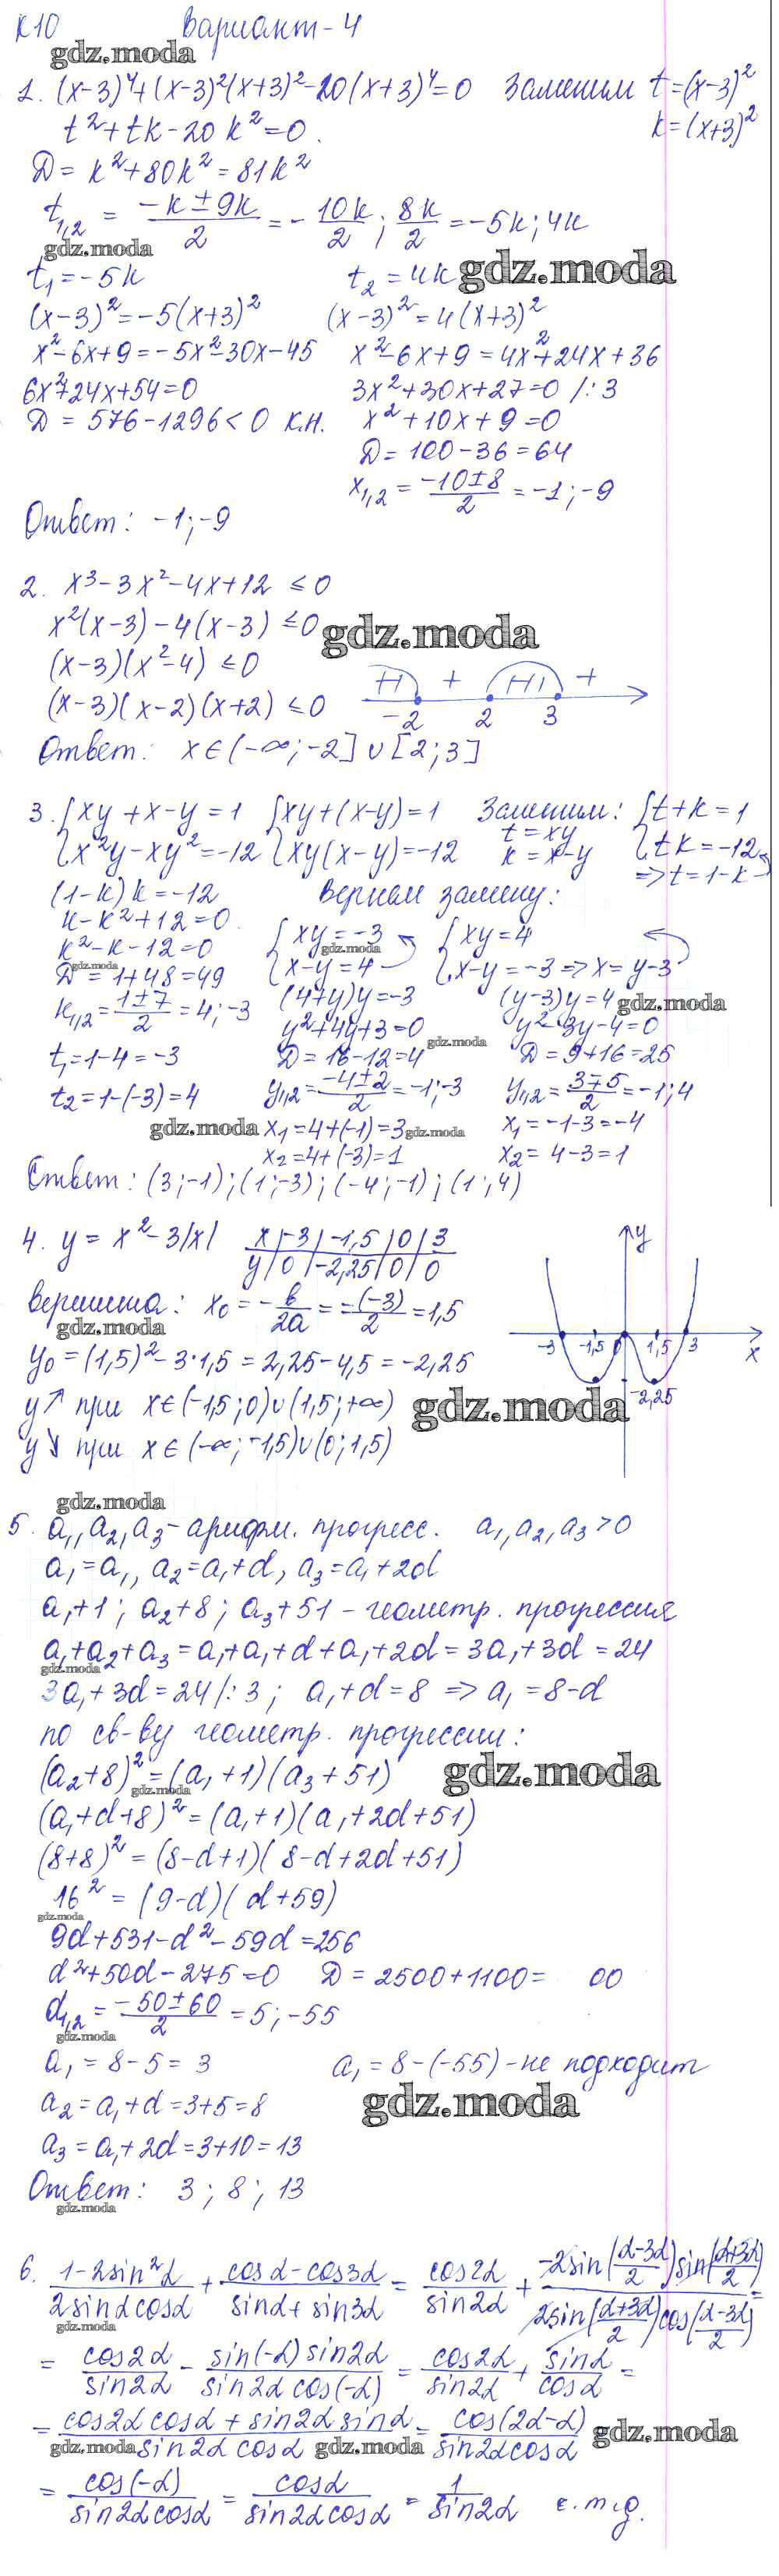 К10 Вариант-4
gdz.moda
1. (x-3)⁴+(x-3)²(x+3)²-20(x+3)⁴=0 Заменим t=(x-3)²
t²+tk-20k²=0. k=(x+3)²
Д=k²+80k²=81k²
t₁,₂ = (-k±9k)/2 = -10k/2; 8k/2 = -5k; 4k
gdz.moda
t₁=-5k t₂=4k gdz.moda
(x-3)²=-5(x+3)² (x-3)²=4(x+3)²
x²-6x+9=-5x²-30x-45 x²-6x+9=4x²+24x+36
6x²+24x+54=0 3x²+30x+27=0 /:3
Д=576-1296<0 К.Н. x²+10x+9=0
Д=100-36=64
x₁,₂ = (-10±8)/2 = -1; -9
Ответ: -1; -9
2. x³-3x²-4x+12 ≤0
x²(x-3)-4(x-3) ≤0 gdz.moda
(x-3)(x²-4) ≤0
(x-3)(x-2)(x+2) ≤0 + + -2 2 3
Ответ: x∈(-∞;-2]∪[2;3]
3. {xy+x-y=1 {xy+(x-y)=1 Заменим: {t+k=1
t=xy
{x²y-xy²=-12 {xy(x-y)=-12 k=x-y {tk=-12
=>t=1-k
(1-k)k=-12 Вернем замену:
k-k²+12=0. {xy=-3 {xy=4
gdz.moda
k²-k-12=0 {x-y=4 {x-y=-3=>x=y-3
gdz.moda
Д=1+48=49 (4+y)y=-3 (y-3)y=4 gdz.moda
k₁,₂=(1±7)/2=4;-3 y²+4y+3=0 gdz.moda y²-3y-4=0
t₁=1-4=-3 Д=16-12=4 Д=9+16=25
t₂=1-(-3)=4 y₁,₂=(-4±2)/2=-1;-3 y₁,₂=(3∓5)/2=-1;4
gdz.moda x₁=4+(-1)=3 gdz.moda x₁=-1-3=-4
x₂=4+(-3)=1 x₂=4-3=1
Ответ: (3;-1);(1;-3);(-4;-1);(1;4)
4. y=x²-3|x| x|-3|-1,5|0|3 y
y|0|-2,25|0|0
вершина: x₀=-в/2a=-(-3)/2=1,5
gdz.moda -3 -1,5 0 1,5 3 x
y₀=(1,5)²-3·1,5=2,25-4,5=-2,25
-2,25
y↗ при x∈(-1,5;0)∪(1,5;+∞) gdz.moda
y↘ при x∈(-∞;-1,5)∪(0;1,5)
gdz.moda
5. a₁,a₂,a₃-арифм. прогресс. a₁,a₂,a₃>0
a₁=a₁, a₂=a₁+d, a₃=a₁+2d
a₁+1; a₂+8; a₃+51 - геометр. прогрессия
a₁+a₂+a₃=a₁+a₁+d+a₁+2d=3a₁+3d=24
gdz.moda
3a₁+3d=24/:3; a₁+d=8 => a₁=8-d
по св-ву геометр. прогрессии:
(a₂+8)²=(a₁+1)(a₃+51) gdz.moda
gdz.moda
(a₁+d+8)²=(a₁+1)(a₁+2d+51)
(8+8)²=(8-d+1)(8-d+2d+51)
16²=(9-d)(d+59)
gdz.moda
9d+531-d²-59d=256
d²+50d-275=0 Д=2500+1100= 00
d₁,₂=(-50±60)/2=5;-55
gdz.moda
a₁=8-5=3 a₁=8-(-55)-не подходит
a₂=a₁+d=3+5=8 gdz.moda
a₃=a₁+2d=3+10=13
Ответ: 3; 8; 13
gdz.moda
6. (1-2sin²α)/(2sinαcosα) + (cosα-cos3α)/(sinα+sin3α) = cos2α/sin2α + (-2sin((α-3α)/2)sin((α+3α)/2))/(2sin((α+3α)/2)cos((α-3α)/2)) =
gdz.moda
= cos2α/sin2α - (sin(-α)sin2α)/(sin2αcos(-α)) = cos2α/sin2α + sinα/cosα =
= (cos2αcosα+sin2αsinα)/(sin2αcosα) = cos(2α-α)/(sin2αcosα) gdz.moda
gdz.moda gdz.moda
= cos(-α)/(sin2αcosα) = cosα/(sin2αcosα) = 1/sin2α